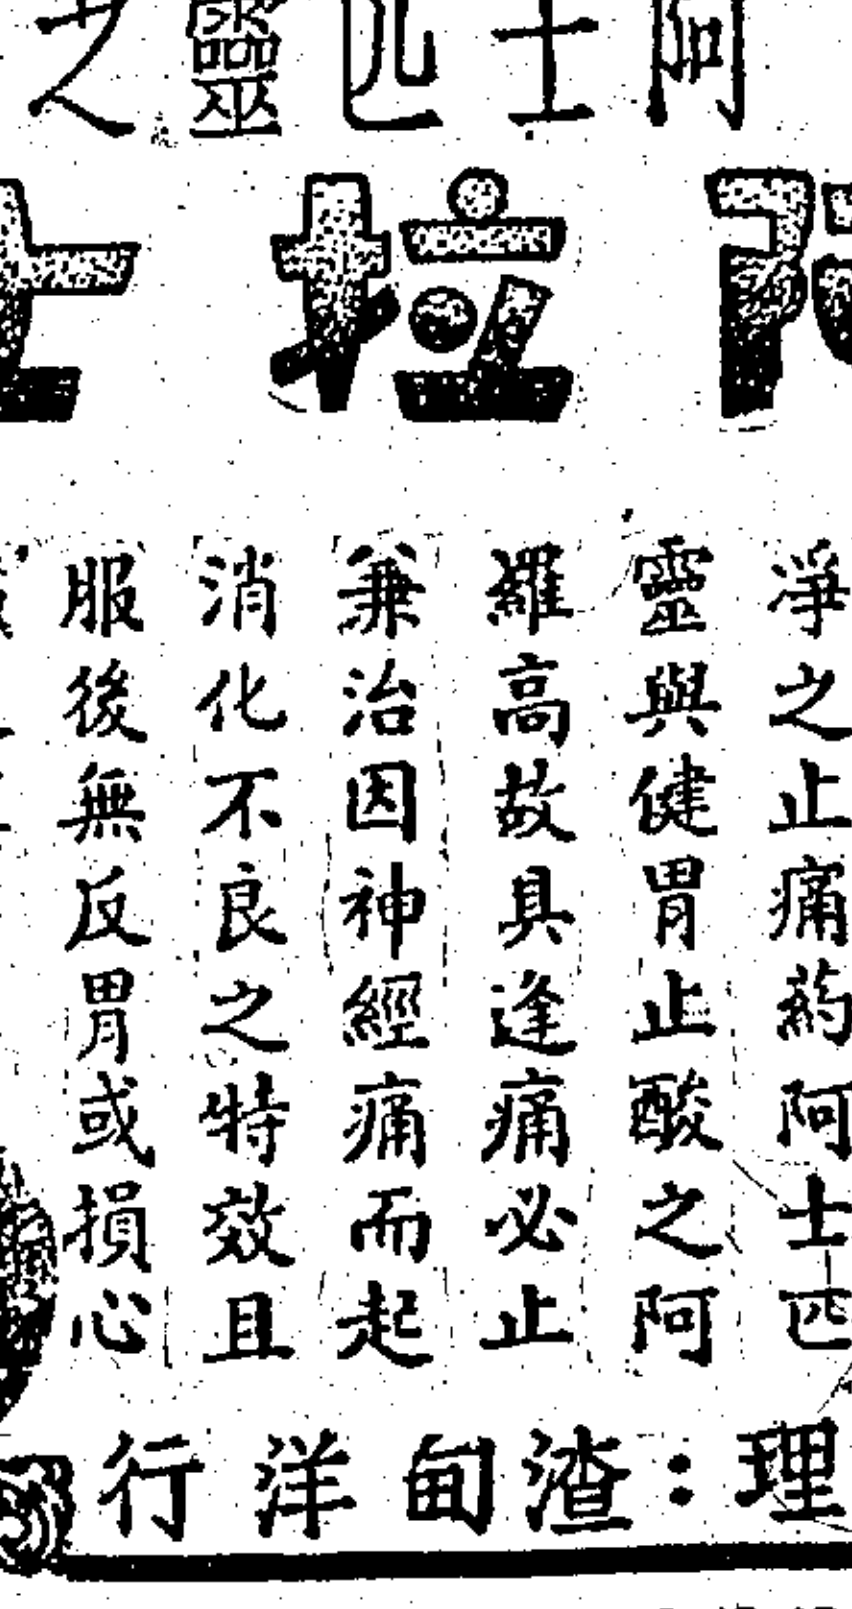 阿士匹靈之
拉士
凈之止痛葯阿士匹
靈與健胃止酸之阿
羅高故具逢痛必止
兼治因神經痛而起
消化不良之特效且
服後無反胃或損心
理：渣甸洋行